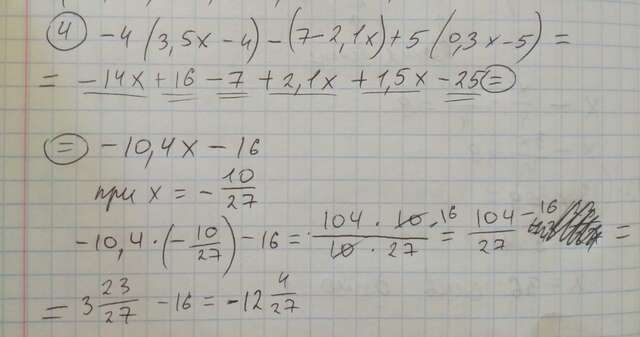 4 -4(3,5x-4)-(7-2,1x)+5(0,3x-5)=
= -14x+16-7+2,1x+1,5x-25=
= -10,4x-16
при x = -10/27
-10,4·(-10/27)-16 = 104·10/10·27 -16 = 104/27 -16 =
= 3 23/27 -16 = -12 4/27